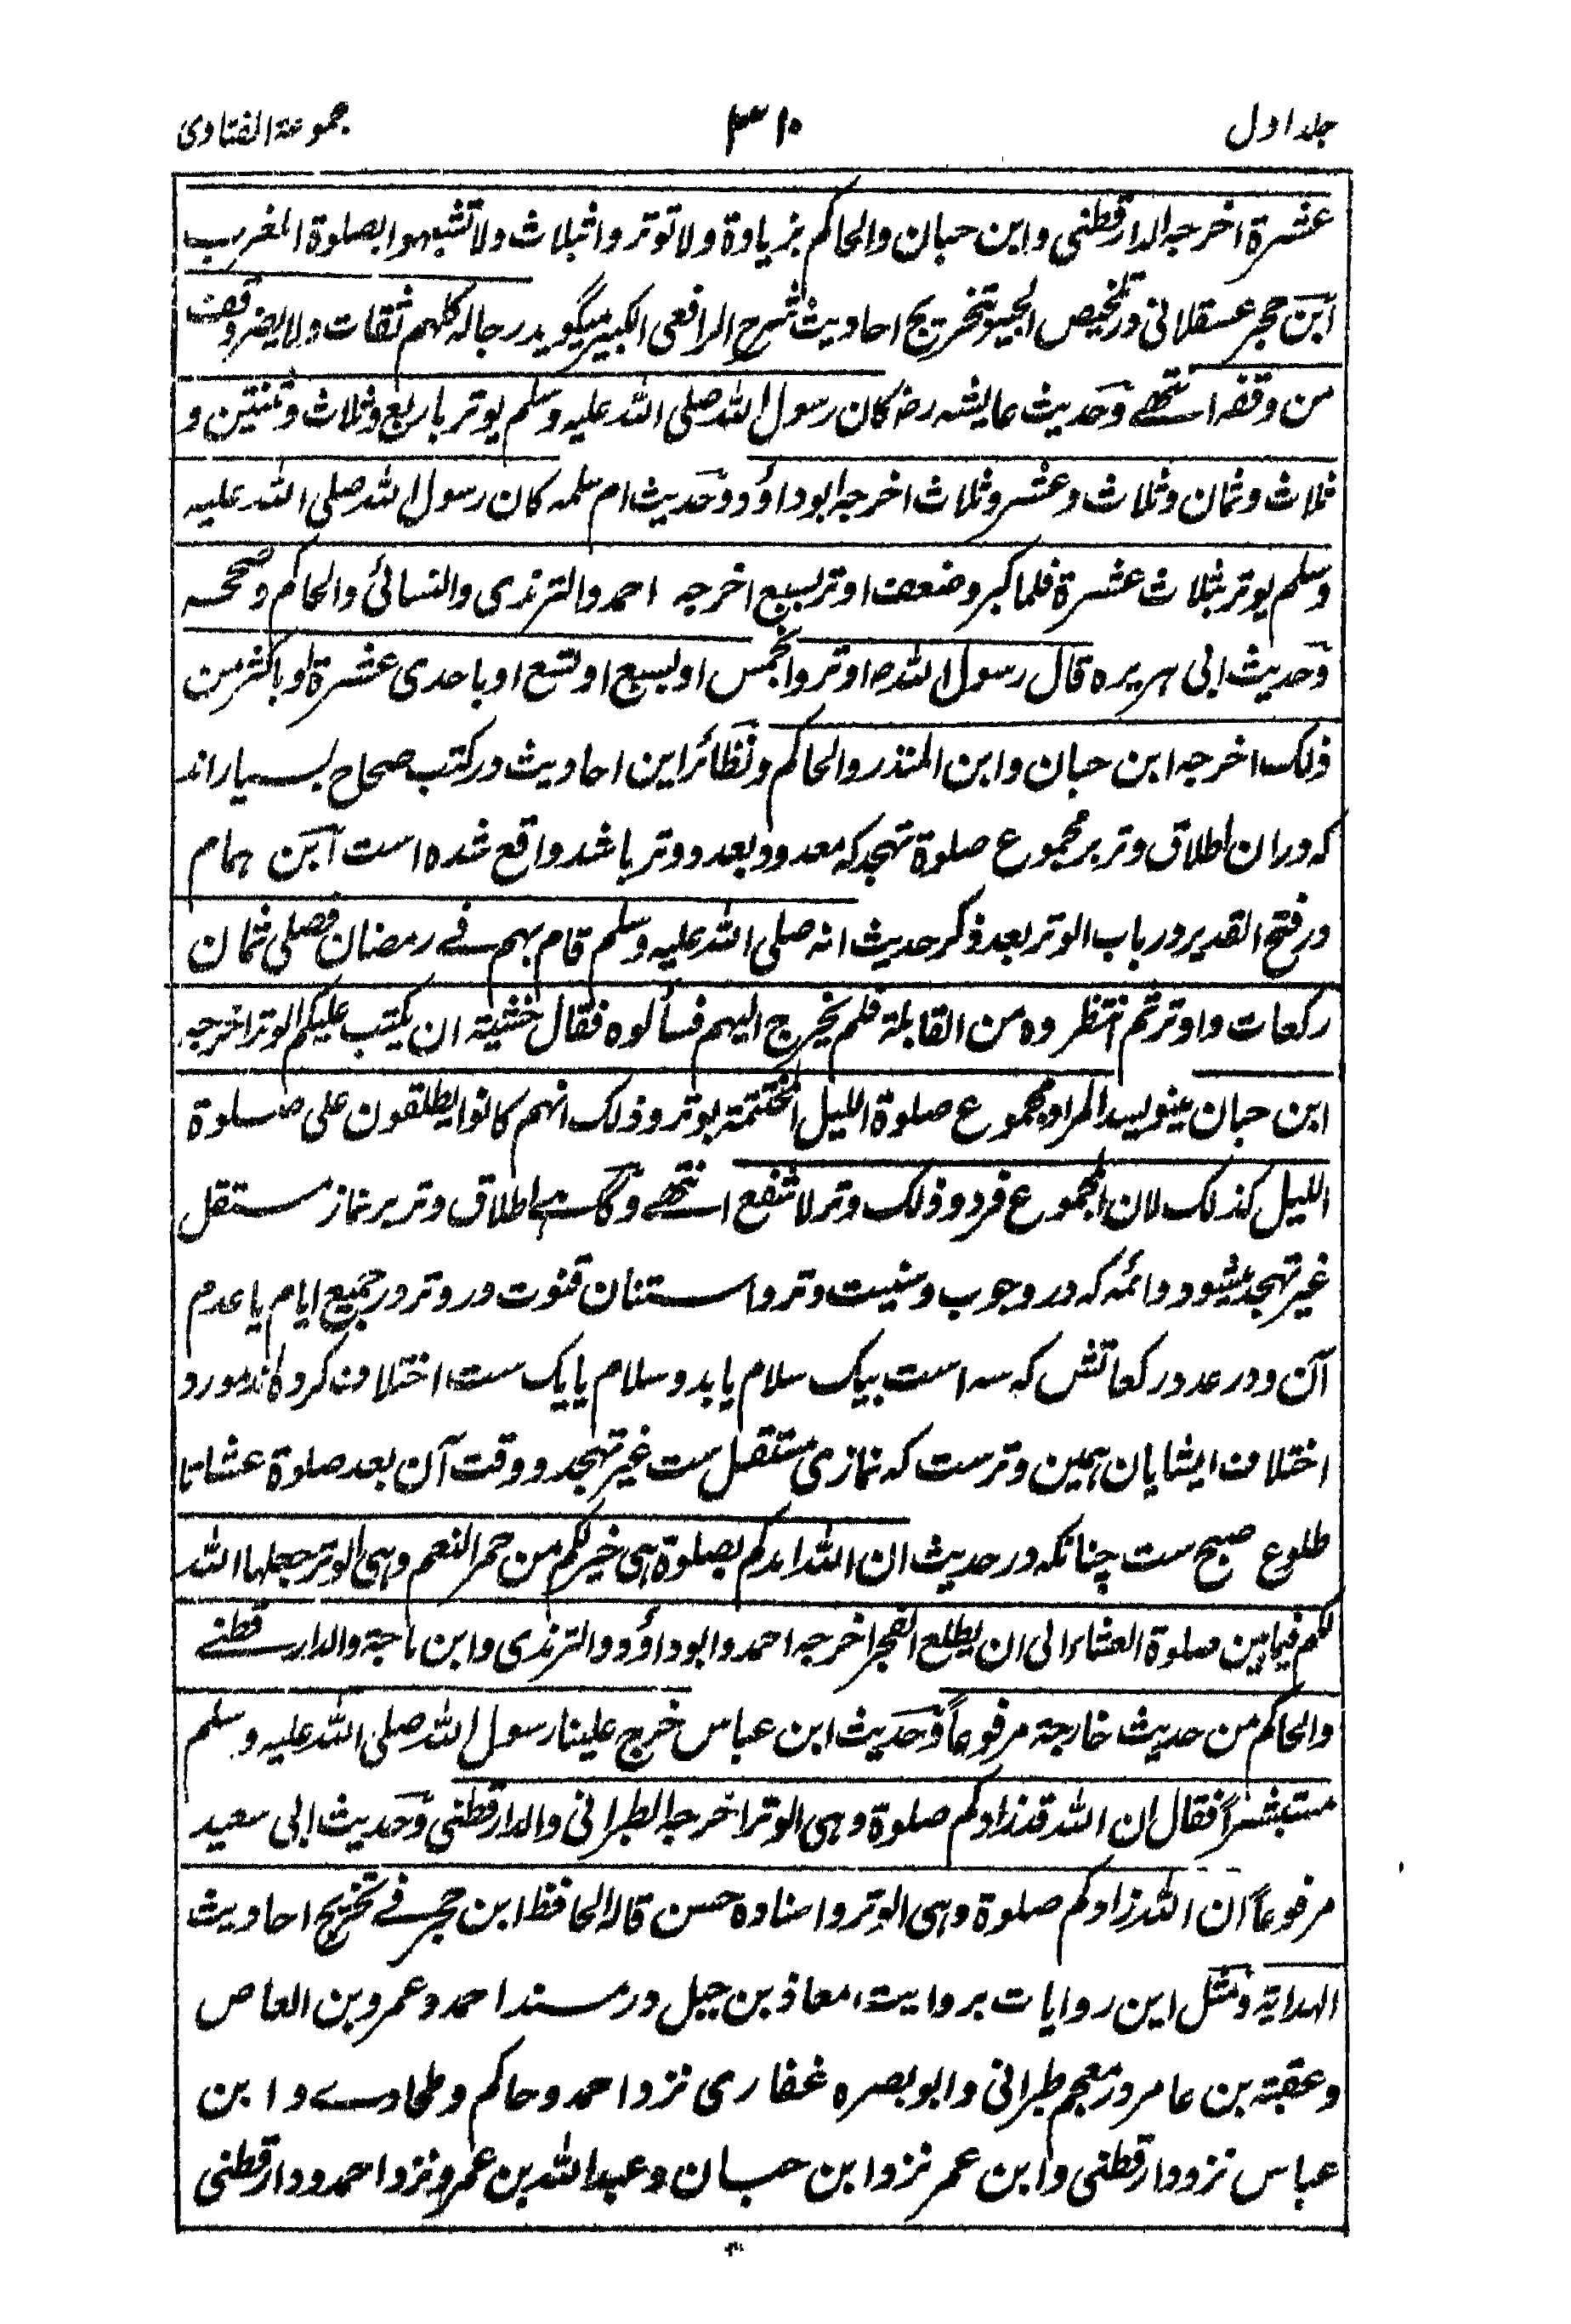 جلد اول
۳۱۰
مجموعۃ الفتاوی
عشرة اخرجه الدارقطنی وابن حبان والحاکم بزیادة ولا توتروا بثلاث ولا تشبهوا بصلوة المغرب
ابن حجر عسقلانی در تلخیص الحبیر تخریج احادیث شرح الرافعی الکبیر میگوید رجاله کلهم ثقات ولا یضر وقف
من وقفه انتهے وحدیث عایشه رض کان رسول الله صلی الله علیه وسلم یوتر باربع وثلاث وثنتین و
ثلاث وثمان وثلاث وعشر وثلاث اخرجه ابوداؤد وحدیث ام سلمه کان رسول الله صلی الله علیه
وسلم یوتر بثلاث عشرة فلما کبر وضعف اوتر بسبع اخرجه احمد والترمذی والنسائی والحاکم وصححه
وحدیث ابی هریره قال رسول الله ص اوتروا بخمس او بسبع او تسع او باحدی عشرة او باکثر من
ذلک اخرجه ابن حبان وابن المنذر والحاکم ونظائر این احادیث در کتب صحاح بسیار اند
که در ان اطلاق وتر بر مجموع صلوة تهجد که معدود بعدد وتر باشد واقع شده است ابن همام
در فتح القدیر در باب الوتر بعد ذکر حدیث انه صلی الله علیه وسلم قام بهم فے رمضان فصلی ثمان
رکعات واوتر ثم انتظروه من القابلة فلم یخرج الیهم فسألوه فقال خشیت ان یکتب علیکم الوتر اخرجه
ابن حبان مینویسد المراد مجموع صلوة اللیل المختتمة بوتر وذلک انهم کانوا یطلقون علی صلوة
اللیل کذلک لان المجموع فرد وذلک وتر لا شفع انتهے وگاہے اطلاق وتر بر نماز مستقل
غیر تهجد میشود وائمه که در وجوب وسنیت وتر واستنان قنوت در وتر در جمیع ایام یا عدم
آن ودر عدد رکعاتش که سه است بیک سلام یا بدو سلام یا یک ست اختلاف کرده اند مورد
اختلاف ایشایان همین وترست که نمازی مستقل ست غیر تهجد ووقت آن بعد صلوة عشا تا
طلوع صبح ست چنانکه در حدیث ان الله امدکم بصلوة هی خیر لکم من حمر النعم وهی الوتر جعلها الله
لکم فیما بین صلوة العشاء الی ان یطلع الفجر اخرجه احمد وابوداؤد والترمذی وابن ماجة والدارقطنے
والحاکم من حدیث خارجة مرفوعاً وحدیث ابن عباس خرج علینا رسول الله صلی الله علیه وسلم
مستبشراً فقال ان الله قد زادکم صلوة وهی الوتر اخرجه الطبرانی والدارقطنی وحدیث ابی سعید
مرفوعاً ان الله زادکم صلوة وهی الوتر واسناده حسن قاله الحافظ ابن حجر فے تخریج احادیث
الهدایة ومثل این روایات بروایت معاذ بن جبل در مسند احمد وعمرو بن العاص
وعقبته بن عامر در معجم طبرانی وابو بصره غفاری نزد احمد وحاکم وطحاوے وابن
عباس نزد دارقطنی وابن عمر نزد ابن حبان وعبدالله بن عمرو نزد احمد ودارقطنی